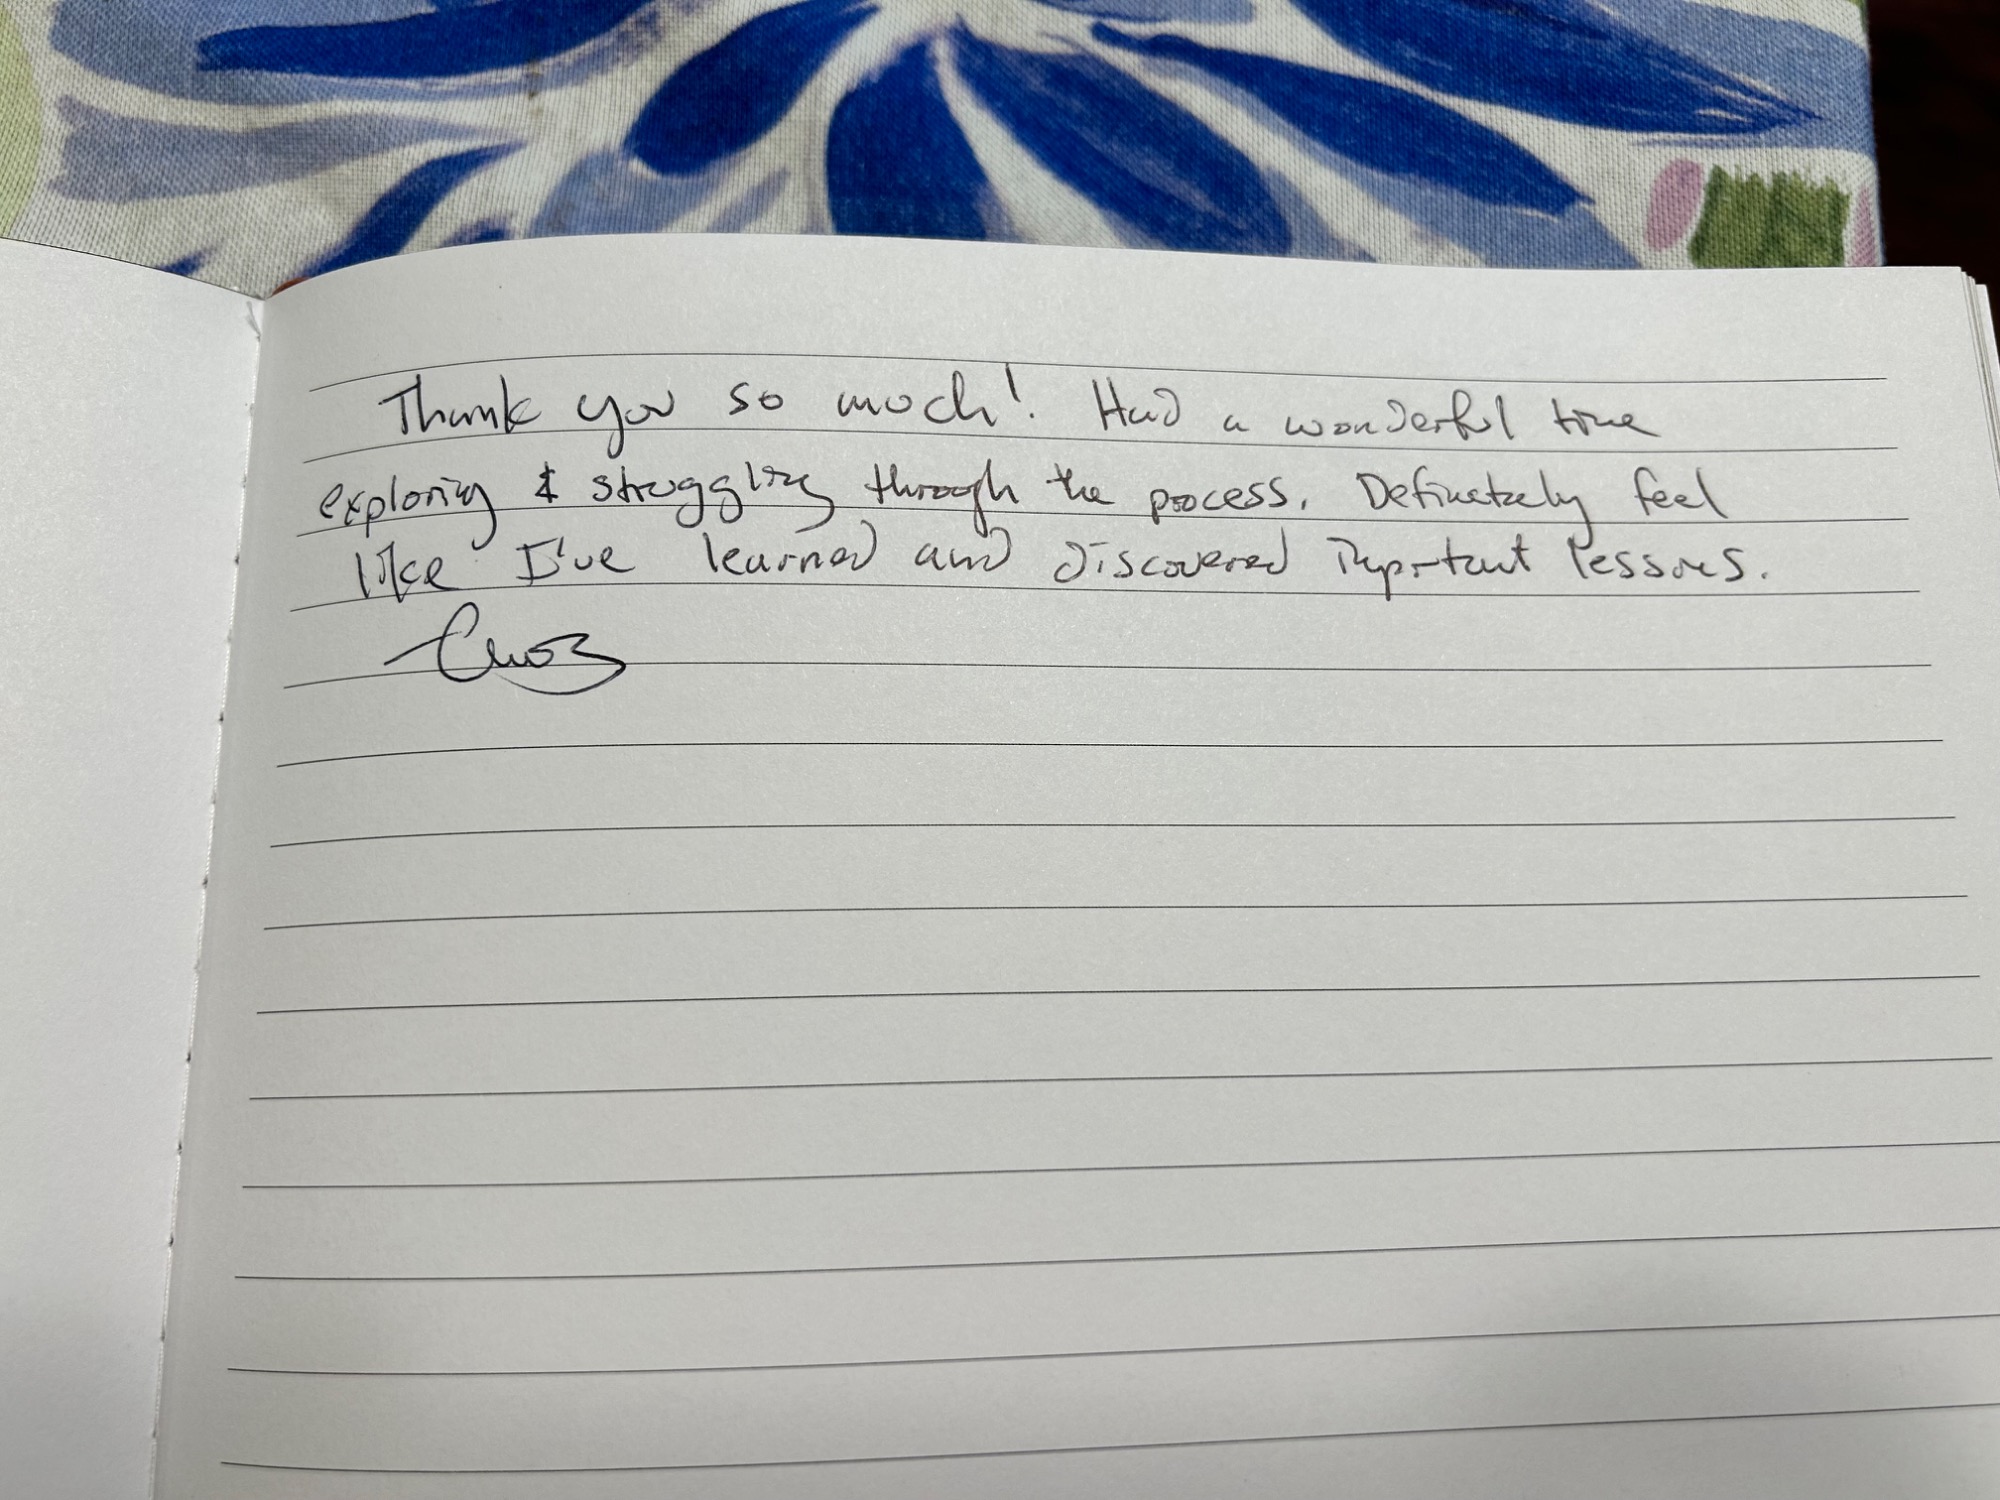 Thank you so much! Had a wonderful time
exploring & struggling through the process. Definetely feel
like I've learned and discovered important lessons.